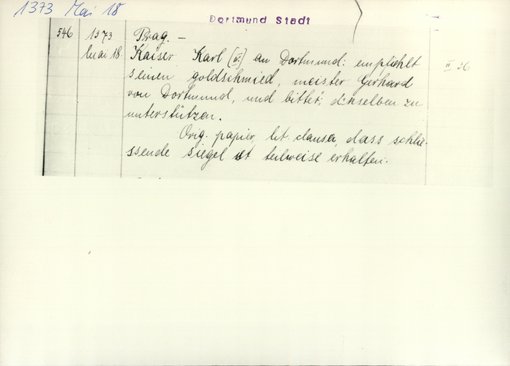 1373 Mai 18
Dortmund Stadt
546 1373 Prag. –
Mai 18. Kaiser Karl an Dortmund: empfiehlt
seinen goldschmied, meister Gerhard
von Dortmund, und bittet, denselben zu
unterstützen.
Orig. papier, lit. clausa, dass schlie-
ssende siegel ist teilweise erhalten.